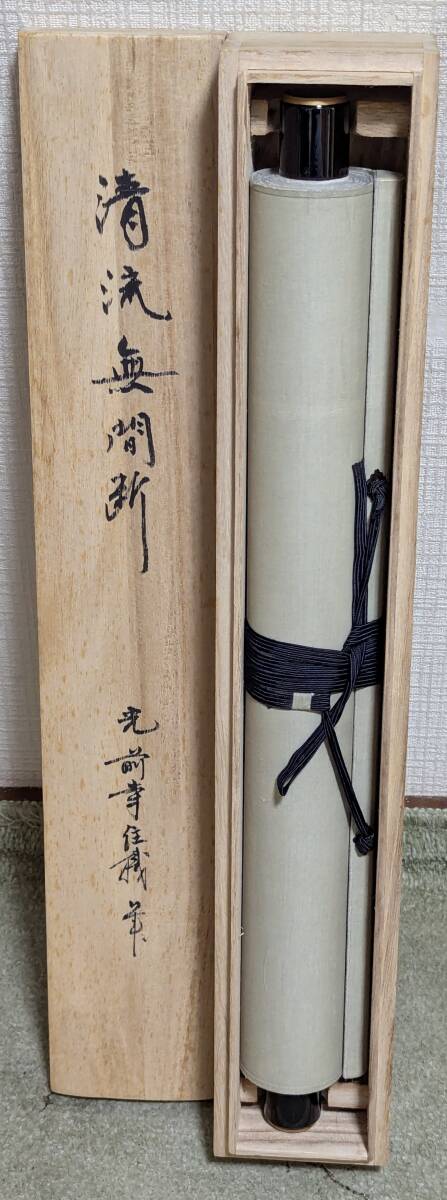 清流無間断
光前寺住職筆